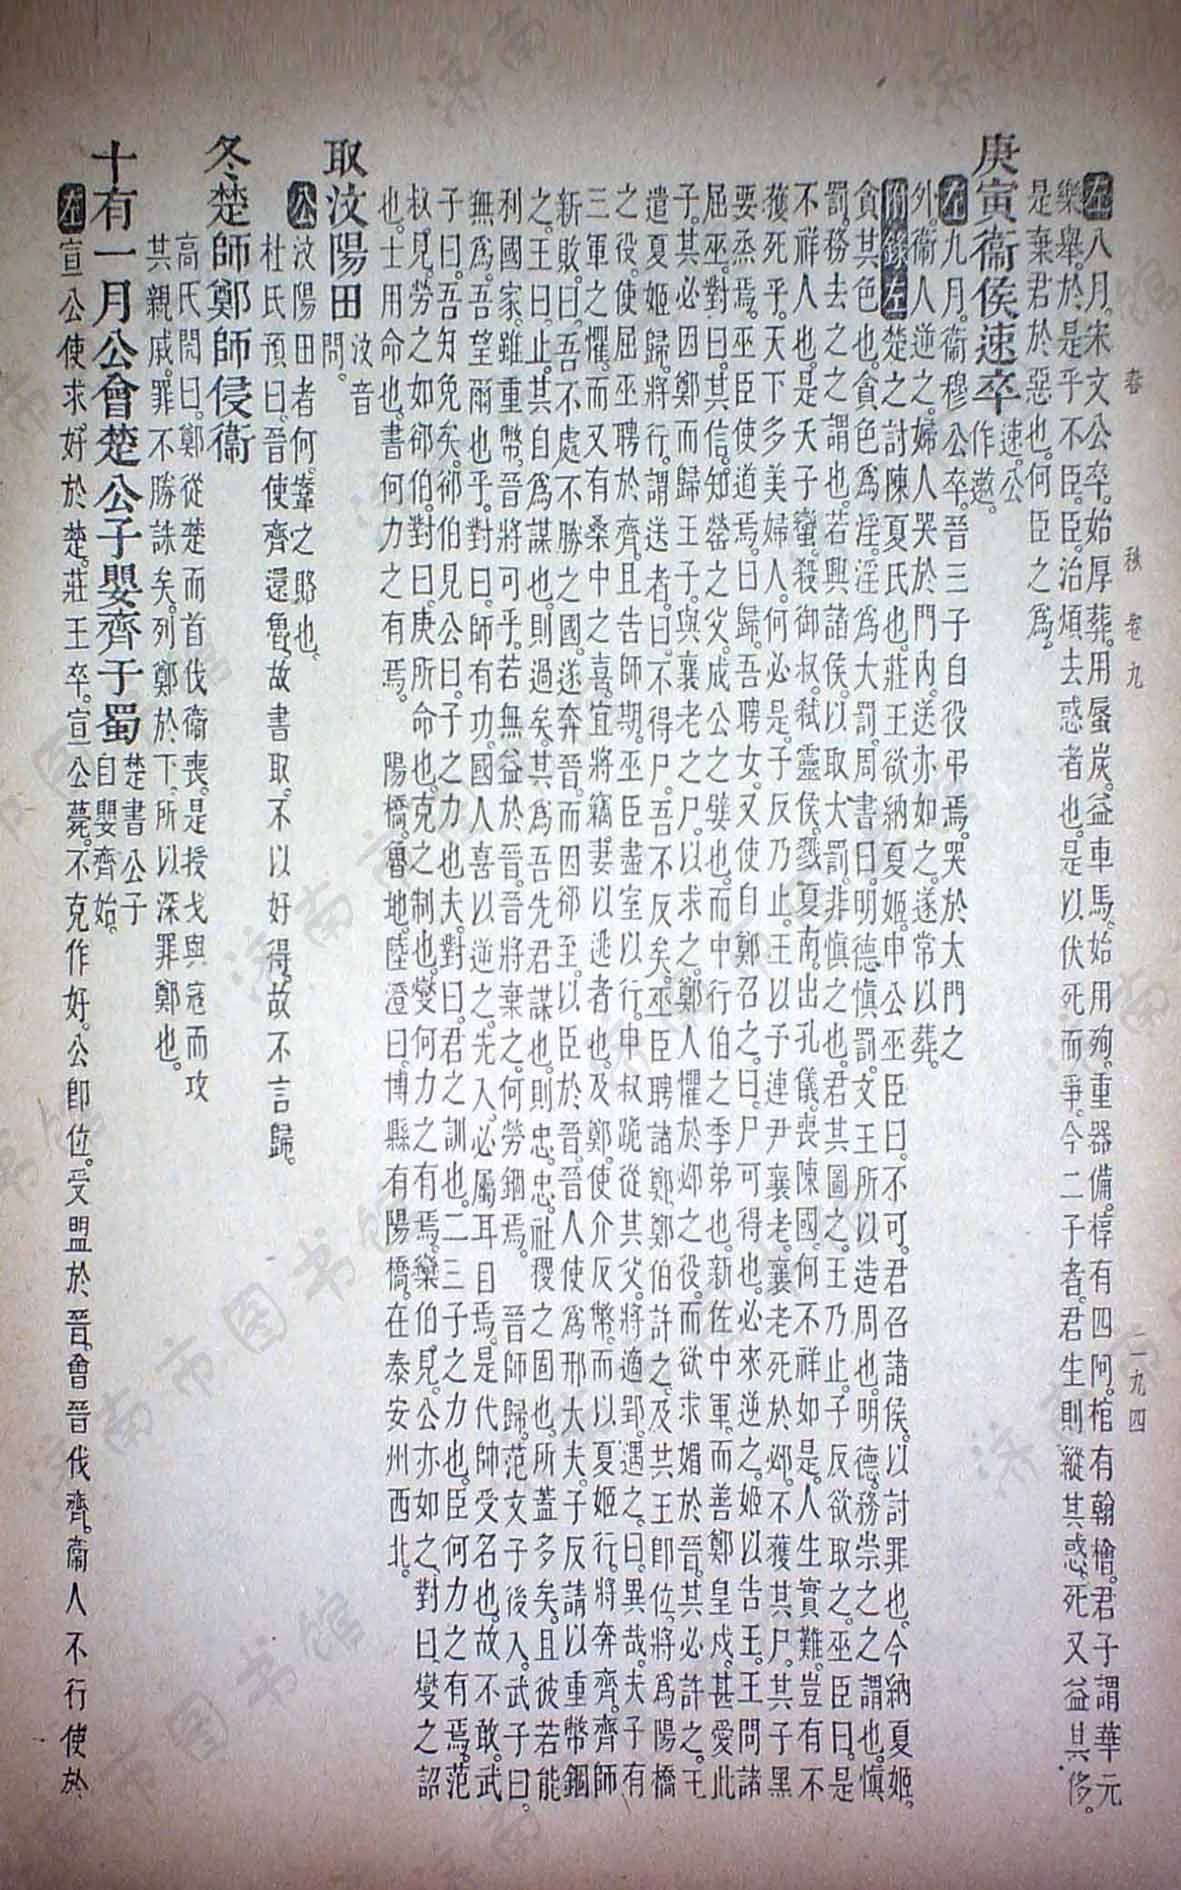 春　秋　卷九　一九四
左八月。宋文公卒。始厚葬。用蜃炭。益車馬。始用殉。重器備。椁有四阿。棺有翰檜。君子謂華元
樂舉。於是乎不臣。臣。治煩去惑者也。是以伏死而爭。今二子者。君生則縱其惑。死又益其侈。
是棄君於惡也。何臣之爲。
庚寅衞侯速卒速。公
作遬。
左九月。衞穆公卒。晉三子自役弔焉。哭於大門之
外。衞人逆之。婦人哭於門內。送亦如之。遂常以葬。
附錄左楚之討陳夏氏也。莊王欲納夏姬。申公巫臣曰。不可。君召諸侯。以討罪也。今納夏姬。
貪其色也。貪色爲淫。淫爲大罰。周書曰。明德愼罰。文王所以造周也。明德。務崇之之謂也。愼
罰。務去之之謂也。若興諸侯。以取大罰。非愼之也。君其圖之。王乃止。子反欲取之。巫臣曰。是
不祥人也。是夭子蠻。殺御叔。弒靈侯。戮夏南。出孔儀。喪陳國。何不祥如是。人生實難。豈有不
獲死乎。天下多美婦人。何必是。子反乃止。王以子連尹襄老。襄老死於邲。不獲其尸。其子黑
要烝焉。巫臣使道焉。曰歸。吾聘女。又使自鄭召之。曰。尸可得也。必來逆之。姬以告王。王問諸
屈巫。對曰。其信。知罃之父。成公之嬖也。而中行伯之季弟也。新佐中軍。而善鄭皇戍。甚愛此
子。其必因鄭而歸王子。與襄老之尸。以求之。鄭人懼於邲之役。而欲求媚於晉。其必許之。王
遣夏姬歸。將行。謂送者。曰。不得尸。吾不反矣。巫臣聘諸鄭。鄭伯許之。及共王卽位。將爲陽橋
之役。使屈巫聘於齊。且告師期。巫臣盡室以行。申叔跪從其父。將適郢。遇之。曰。異哉。夫子有
三軍之懼。而又有桑中之喜。宜將竊。妻以逃者也。及鄭。使介反幣。而以夏姬行。將奔齊。齊師
新敗。曰。吾不處不勝之國。遂奔晉。而因郤至。以臣於晉。晉人使爲邢大夫。子反請以重幣錮
之。王曰。止。其自爲謀也。則過矣。其爲吾先君謀也。則忠。忠。社稷之固也。所蓋多矣。且彼若能
利國家。雖重幣。晉將可乎。若無益於晉。晉將棄之。何勞錮焉。　晉師歸。范文子後入。武子曰。
無爲。吾望爾也乎。對曰。師有功。國人喜以逆之。先入。必屬耳目焉。是代帥受名也。故不敢。武
子曰。吾知免矣。郤伯見公曰。子之力也夫。對曰。君之訓也。二三子之力也。臣何力之有焉。范
叔。見。勞之如郤伯。對曰。庚所命也。克之制也。燮何力之有焉。欒伯。見。公亦如之。對曰燮之詔
也。士用命也。書何力之有焉。　陽橋。魯地。陸澄曰。博縣有陽橋。在泰安州西北。
取汶陽田汶音
問。
公汶陽田者何。鞌之賂也。
杜氏預曰。晉使齊還魯。故書取。不以好得。故不言歸。
冬楚師鄭師侵衞
高氏閌曰。鄭從楚而首伐衞喪。是授戈與寇而攻
其親戚。罪不勝誅矣。列鄭於下。所以深罪鄭也。
十有一月公會楚公子嬰齊于蜀楚書公子
自嬰齊始。
左宣公使求。好於楚。莊王卒。宣公薨。不克作好。公卽位。受盟於晉。會晉伐齊。衞人不行使於